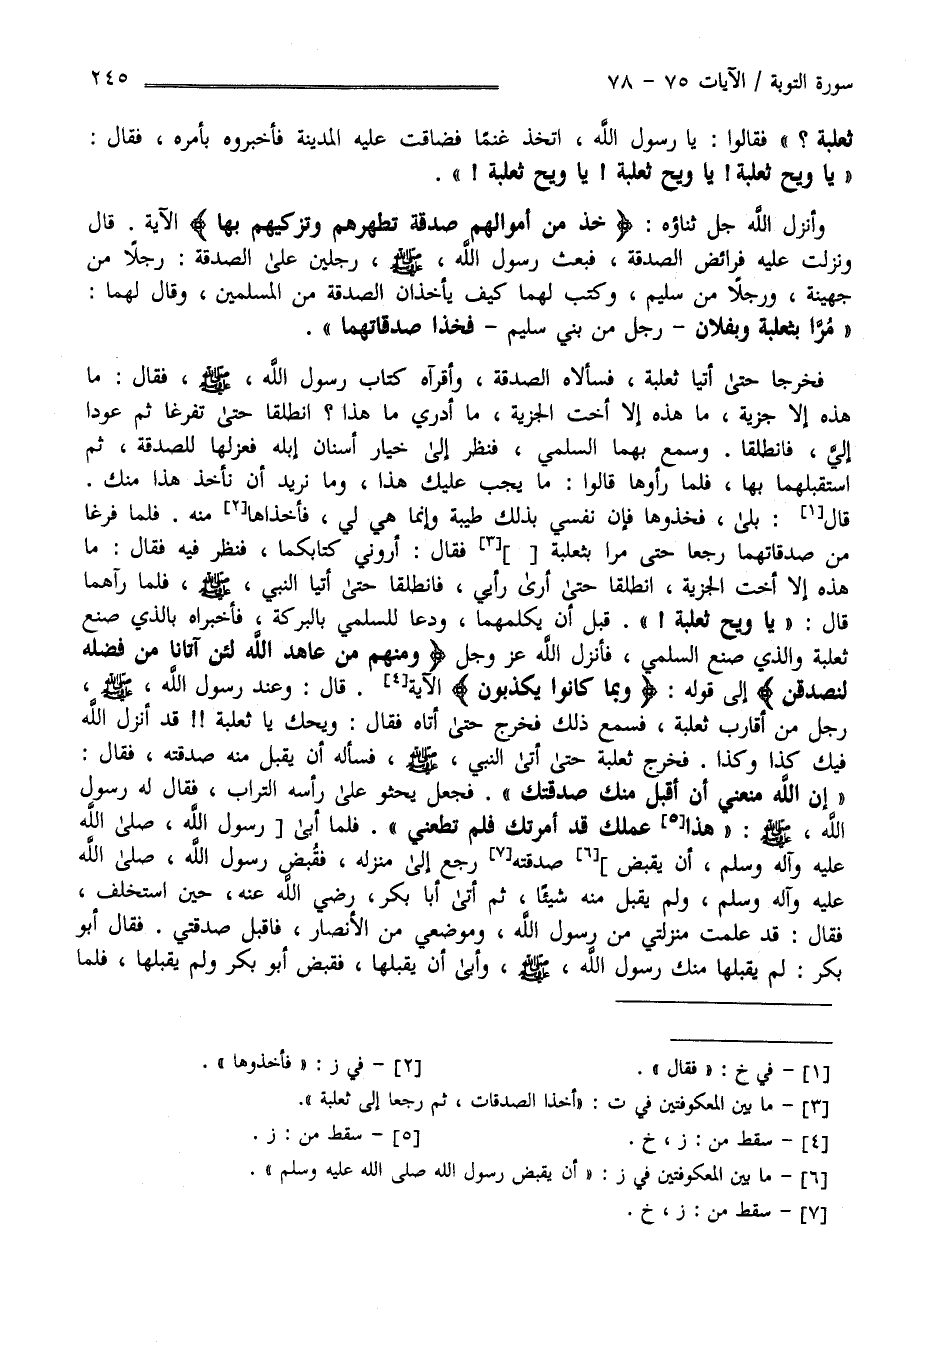 سورة التوبة / الآيات ٧٥ - ٧٨ ٢٤٥
ثعلبة ؟ » فقالوا : يا رسول اللَّه ، اتخذ غنمًا فضاقت عليه المدينة فأخبروه بأمره ، فقال :
« يا ويح ثعلبة ! يا ويح ثعلبة ! يا ويح ثعلبة ! » .
وأنزل اللَّه جل ثناؤه : ﴿ خذ من أموالهم صدقة تطهرهم وتزكيهم بها ﴾ الآية . قال
ونزلت عليه فرائض الصدقة ، فبعث رسول اللَّه ، ﷺ ، رجلين علىٰ الصدقة : رجلًا من
جهينة ، ورجلًا من سليم ، وكتب لهما كيف يأخذان الصدقة من المسلمين ، وقال لهما :
« مُرَّا بثعلبة وبفلان - رجل من بني سليم - فخذا صدقاتهما » .
فخرجا حتىٰ أتيا ثعلبة ، فسألاه الصدقة ، وأقرآه كتاب رسول اللَّه ، ﷺ ، فقال : ما
هذه إلا جزية ، ما هذه إلا أخت الجزية ، ما أدري ما هذا ؟ انطلقا حتىٰ تفرغا ثم عودا
إليَّ ، فانطلقا . وسمع بهما السلمي ، فنظر إلىٰ خيار أسنان إبله فعزلها للصدقة ، ثم
استقبلهما بها ، فلما رأوها قالوا : ما يجب عليك هذا ، وما نريد أن نأخذ هذا منك .
قال[١] : بلىٰ ، فخذوها فإن نفسي بذلك طيبة وإنما هي لي ، فأخذاها[٢] منه . فلما فرغا
من صدقاتهما رجعا حتى مرا بثعلبة [ ][٣] فقال : أروني كتابكما ، فنظر فيه فقال : ما
هذه إلا أخت الجزية ، انطلقا حتىٰ أرىٰ رأيي ، فانطلقا حتىٰ أتيا النبي ، ﷺ ، فلما رآهما
قال : « يا ويح ثعلبة ! » . قبل أن يكلمهما ، ودعا للسلمي بالبركة ، فأخبراه بالذي صنع
ثعلبة والذي صنع السلمي ، فأنزل اللَّه عز وجل ﴿ ومنهم من عاهد اللَّه لئن آتانا من فضله
لنصدقن ﴾ إلى قوله : ﴿ وبما كانوا يكذبون ﴾ الآية[٤] . قال : وعند رسول اللَّه ، ﷺ ،
رجل من أقارب ثعلبة ، فسمع ذلك فخرج حتىٰ أتاه فقال : ويحك يا ثعلبة !! قد أنزل اللَّه
فيك كذا وكذا . فخرج ثعلبة حتىٰ أتىٰ النبي ، ﷺ ، فسأله أن يقبل منه صدقته ، فقال :
« إن اللَّه منعني أن أقبل منك صدقتك » . فجعل يحثو علىٰ رأسه التراب ، فقال له رسول
اللَّه ، ﷺ : « هذا[٥] عملك قد أمرتك فلم تطعني » . فلما أبىٰ [ رسول اللَّه ، صلىٰ اللَّه
عليه وآله وسلم ، أن يقبض ][٦] صدقته[٧] رجع إلىٰ منزله ، فقُبض رسول اللَّه ، صلىٰ اللَّه
عليه وآله وسلم ، ولم يقبل منه شيئًا ، ثم أتىٰ أبا بكر ، رضي اللَّه عنه ، حين استخلف ،
فقال : قد علمت منزلتي من رسول اللَّه ، وموضعي من الأنصار ، فاقبل صدقتي . فقال أبو
بكر : لم يقبلها منك رسول اللَّه ، ﷺ ، وأبىٰ أن يقبلها ، فقبض أبو بكر ولم يقبلها ، فلما
[١] - في خ : « فقال » . [٢] - في ز : « فأخذوها » .
[٣] - ما بين المعكوفتين في ت : «أخذا الصدقات ، ثم رجعا إلى ثعلبة ».
[٤] - سقط من : ز ، خ . [٥] - سقط من : ز .
[٦] - ما بين المعكوفتين في ز : « أن يقبض رسول الله صلى الله عليه وسلم » .
[٧] - سقط من : ز ، خ .